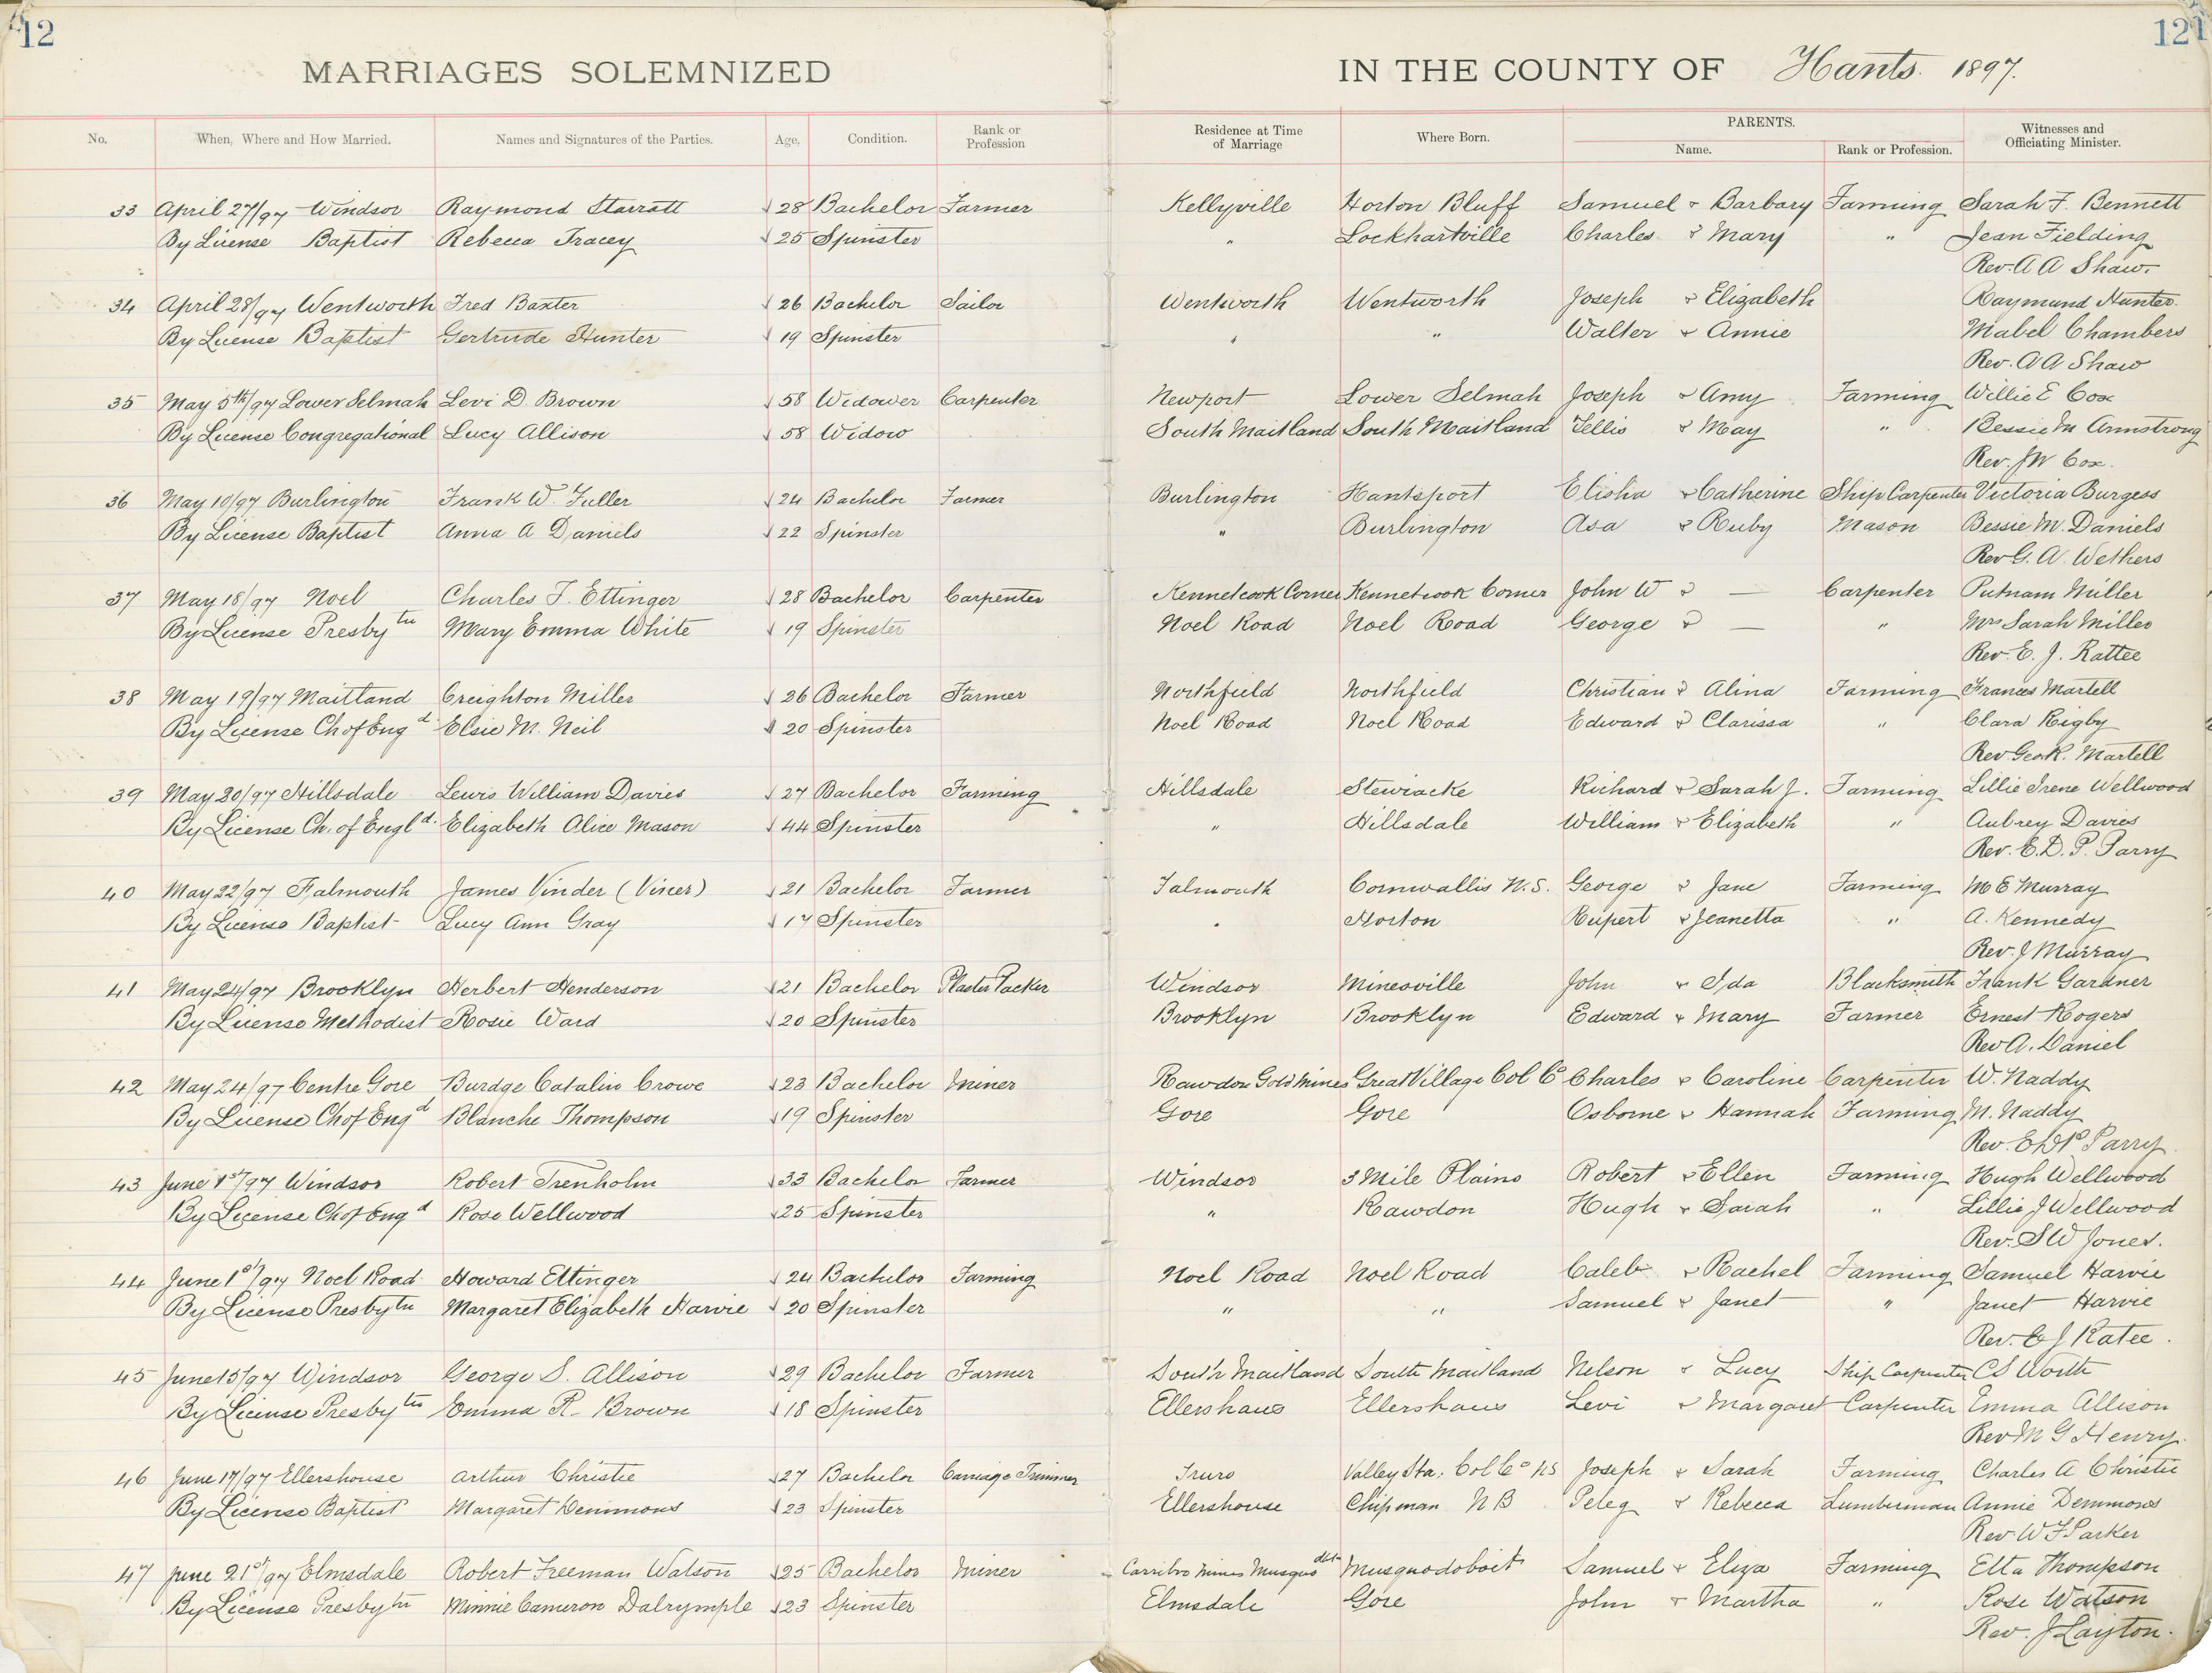 12 121
MARRIAGES SOLEMNIZED IN THE COUNTY OF Hants. 1897.
No. When, Where and How Married. Names and Signatures of the Parties. Age. Condition. Rank or Profession Residence at Time of Marriage Where Born. PARENTS. Name. Rank or Profession. Witnesses and Officiating Minister.
33 April 27/97 Windsor Raymond Starratt 28 Bachelor Farmer Kellyville Horton Bluff Samuel & Barbary Farming Sarah F. Bennett
By License Baptist Rebecca Tracey 25 Spinster " Lockhartville Charles & Mary " Jean Fielding
Rev. A A Shaw.
34 April 28/97 Wentworth Fred Baxter 26 Bachelor Sailor Wentworth Wentworth Joseph & Elizabeth Raymund Hunter.
By License Baptist Gertrude Hunter 19 Spinster " " Walter & Annie Mabel Chambers
Rev. A A Shaw
35 May 5th/97 Lower Selmah Levi D. Brown 58 Widower Carpenter Newport Lower Selmah Joseph & Amy Farming Willie E Cox
By License Congregational Lucy Allison 58 Widow South Maitland South Maitland Tellis & May " Bessie M Armstrong
Rev. J W Cox.
36 May 10/97 Burlington Frank W. Fuller 24 Bachelor Farmer Burlington Hantsport Elisha & Catherine Ship Carpenter Victoria Burgess
By License Baptist Anna A Daniels 22 Spinster " Burlington Asa & Ruby Mason Bessie M. Daniels
Rev G. A. Wethers
37 May 18/97 Noel Charles F. Ettinger 28 Bachelor Carpenter Kennetcook Corner Kennetcook Corner John W & — Carpenter Putnam Miller
By License Presbytn Mary Emma White 19 Spinster Noel Road Noel Road George & — " Mrs Sarah Miller
Rev. E. J. Rattee
38 May 19/97 Maitland Creighton Miller 26 Bachelor Farmer Northfield Northfield Christian & Alina Farming Frances Martell
By License Ch of Engd. Elsie M. Neil 20 Spinster Noel Road Noel Road Edward & Clarissa " Clara Rigby
Rev Geo R. Martell
39 May 20/97 Hillsdale Lewis William Davies 27 Bachelor Farming Hillsdale Stewiacke Richard & Sarah J. Farming Lillie Irene Wellwood
By License Ch. of Engld. Elizabeth Alice Mason 44 Spinster " Hillsdale William & Elizabeth " Aubrey Davies
Rev. E. D. P. Parry
40 May 22/97 Falmouth James Vinder (Viner) 21 Bachelor Farmer Falmouth Cornwallis N.S. George & Jane Farming M E Murray
By License Baptist Lucy Ann Gray 17 Spinster " Horton Rupert & Jeanetta " A. Kennedy
Rev. J Murray
41 May 24/97 Brooklyn Herbert Henderson 21 Bachelor Plaster Packer Windsor Minesville John & Ida Blacksmith Frank Gardner
By License Methodist Rosie Ward 20 Spinster Brooklyn Brooklyn Edward & Mary Farmer Ernest Rogers
Rev A. Daniel
42 May 24/97 Centre Gore Burdge Catalin Crowe 23 Bachelor Miner Rawdon Gold Mines Great Village Col Co Charles & Caroline Carpenter W. Naddy
By License Ch of Engd Blanche Thompson 19 Spinster Gore Gore Osborne & Hannah Farming M. Naddy
Rev. E D P Parry
43 June 1st/97 Windsor Robert Trenholm 33 Bachelor Farmer Windsor 3 Mile Plains Robert & Ellen Farming Hugh Wellwood
By License Ch of Engd Rose Wellwood 25 Spinster " Rawdon Hugh & Sarah " Lillie J Wellwood
Rev. S W Jones.
44 June 1st/97 Noel Road Howard Ettinger 24 Bachelor Farming Noel Road Noel Road Caleb & Rachel Farming Samuel Harvie
By License Presbytn Margaret Elizabeth Harvie 20 Spinster " " Samuel & Janet " Janet Harvie
Rev. E J Ratee.
45 June 15/97 Windsor George S. Allison 29 Bachelor Farmer South Maitland South Maitland Nelson & Lucy Ship Carpenter C S Worth
By License Presbytn Emma R. Brown 18 Spinster Ellershaus Ellershaus Levi & Margaret Carpenter Emma Allison
Rev M G Henry.
46 June 17/97 Ellershouse Arthur Christie 27 Bachelor Carriage Trimmer Truro Valley Sta. Col Co NS Joseph & Sarah Farming Charles A Christie
By License Baptist Margaret Demmons 23 Spinster Ellershouse Chipman N B Peleg & Rebecca Lumberman Annie Demmons
Rev. W F Parker
47 June 21st/97 Elmsdale Robert Freeman Watson 25 Bachelor Miner Carribro Mines Musquo dbt Musquodoboit Samuel & Eliza Farming Etta Thompson
By License Presbytn Minnie Cameron Dalrymple 23 Spinster Elmsdale Gore John & Martha " Rose Watson
Rev. J Layton.